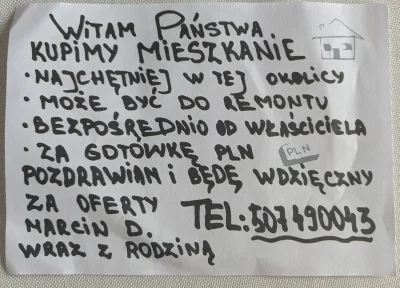 WITAM PAŃSTWA
KUPIMY MIESZKANIE
• NAJCHĘTNIEJ W TEJ OKOLICY
• MOŻE BYĆ DO REMONTU
• BEZPOŚREDNIO OD WŁAŚCICIELA
• ZA GOTÓWKĘ PLN PLN
POZDRAWIAM I BĘDĘ WDZIĘCZNY
ZA OFERTY
MARCIN D.
WRAZ Z RODZINĄ
TEL: 507490043